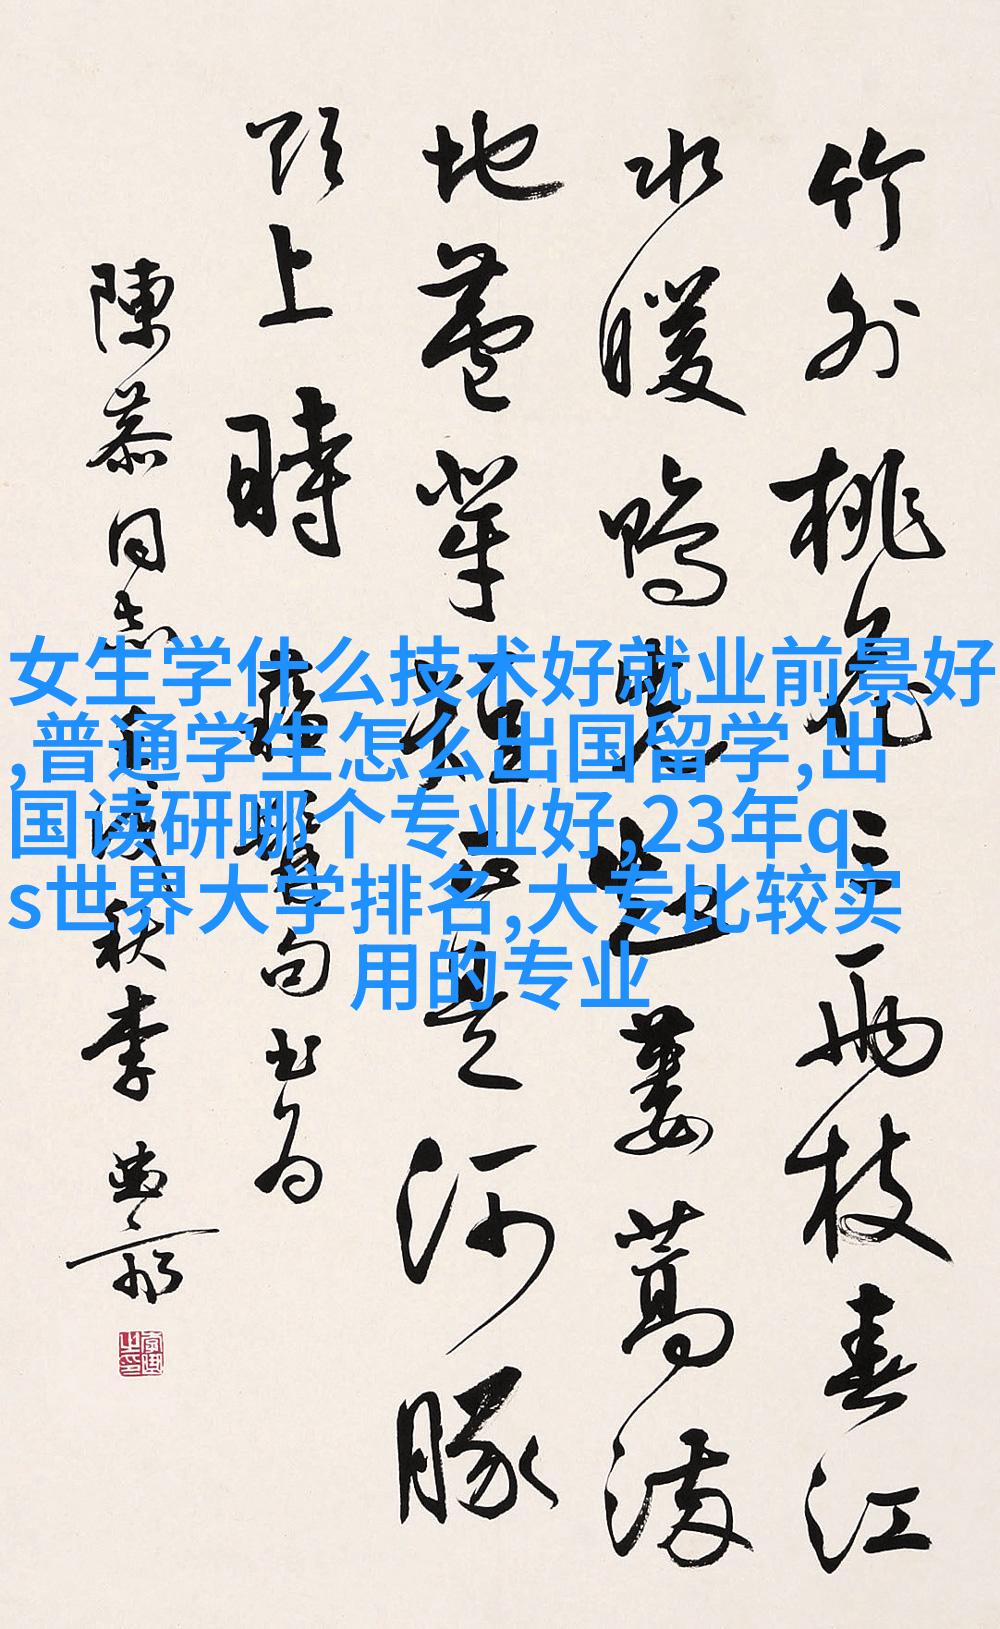 竹外桃花三两枝春江
水暖鸭先知蒌蒿满
地芦芽短正是河豚
欲上时
苏轼句书为
陈慕同志
秋李
女生学什么技术好就业前景好
,普通学生怎么出国留学,出
国读研哪个专业好,23年q
s世界大学排名,大专比较实
用的专业